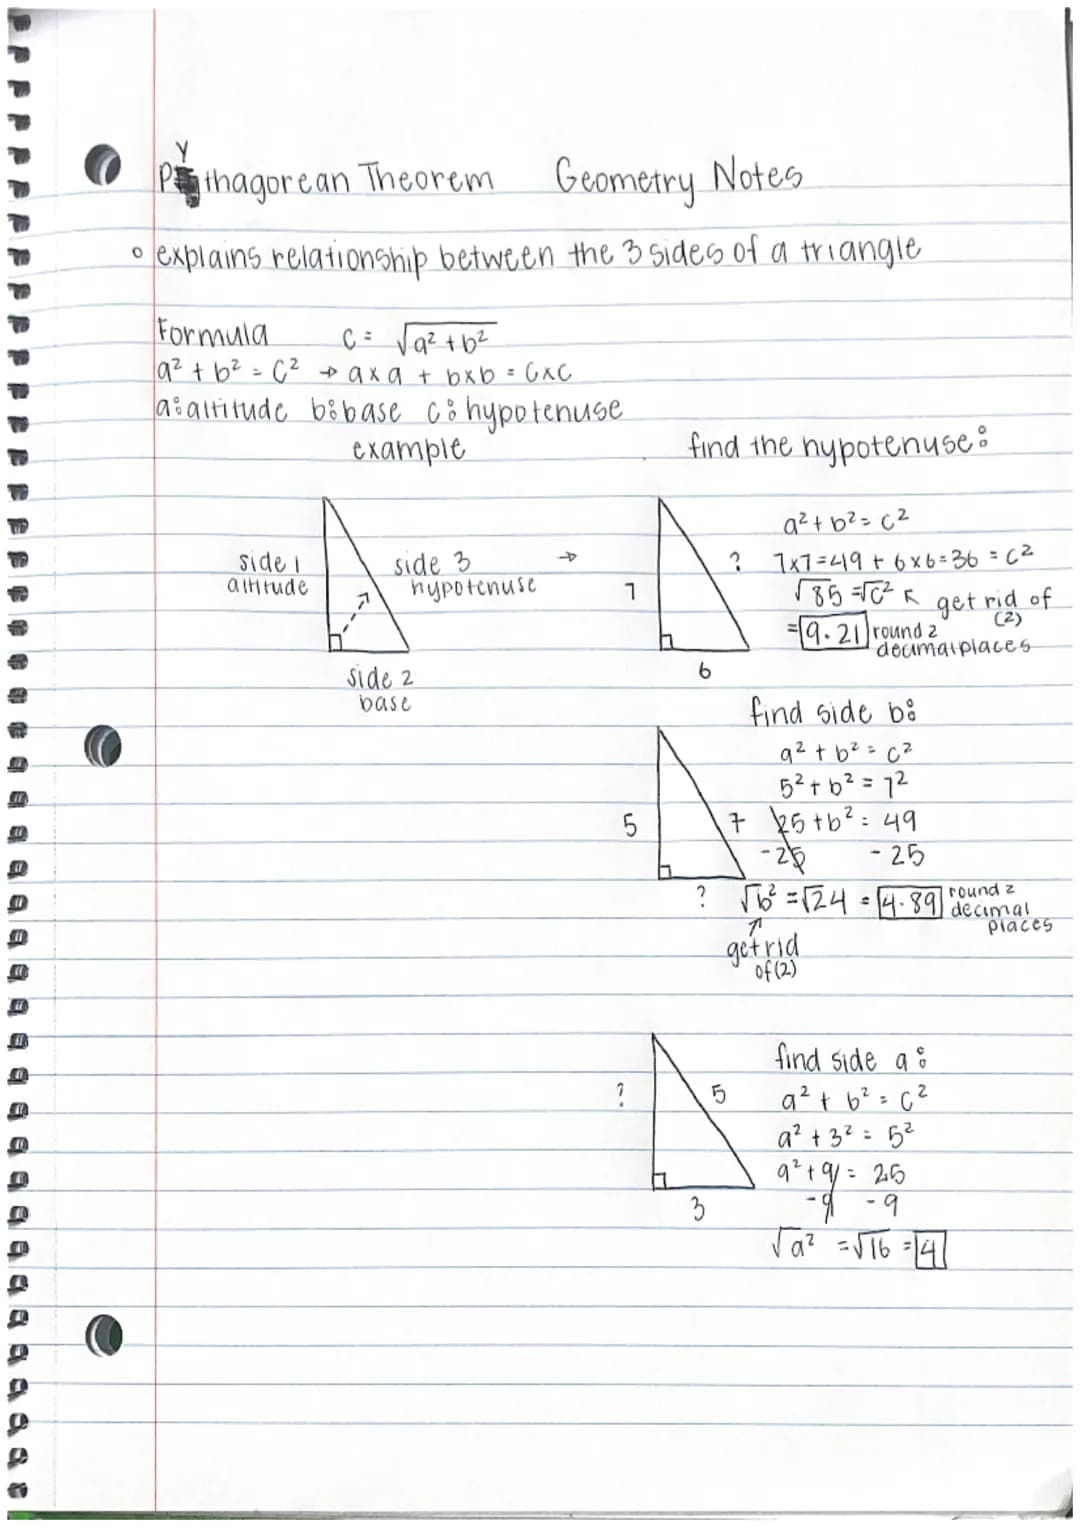 Pythagorean Theorem Geometry Notes
explains relationship between the 3 sides of a triangle
Formula c = √a² + b²
a² + b² = c² → a x a + b x b = c x c
a: altitude b: base c: hypotenuse
example find the hypotenuse:
side 1 altitude
side 3 hypotenuse →
side 2
base
7
?
6
a² + b² = c²
7x7=49 + 6x6=36 = c²
√85 = √c² ↖ get rid of (2)
= 9.21 round 2
decimal places
find side b:
5
7
?
a² + b² = c²
5² + b² = 7²
25 + b² = 49
-25 -25
√b² = √24 = 4.89 round 2
decimal
places
↑
get rid
of (2)
find side a:
?
5
3
a² + b² = c²
a² + 3² = 5²
a² + 9 = 25
-9 -9
√a² = √16 = 4